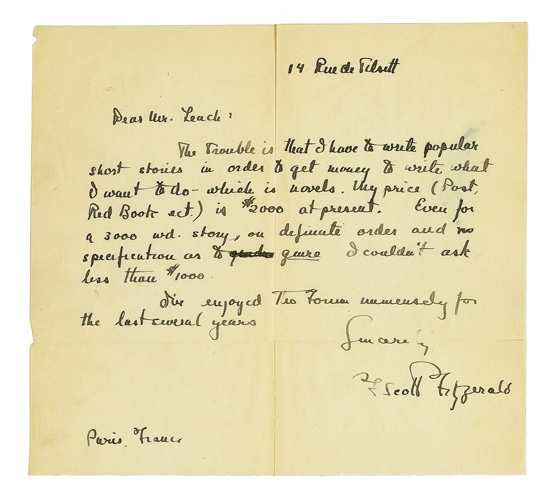 14 Rue de Tilsitt
Dear Mr. Leach:
The Trouble is that I have to write popular
short stories in order to get money to write what
I want to do - which is novels. My price (Post,
Red Book ect.) is $2000 at present. Even for
a 3000 wd. story, on definate order and no
specification as to genre I couldn't ask
less than $1000.
I've enjoyed The Forum immensely for
the last several years
Sincerely
F Scott Fitzgerald
Paris, France